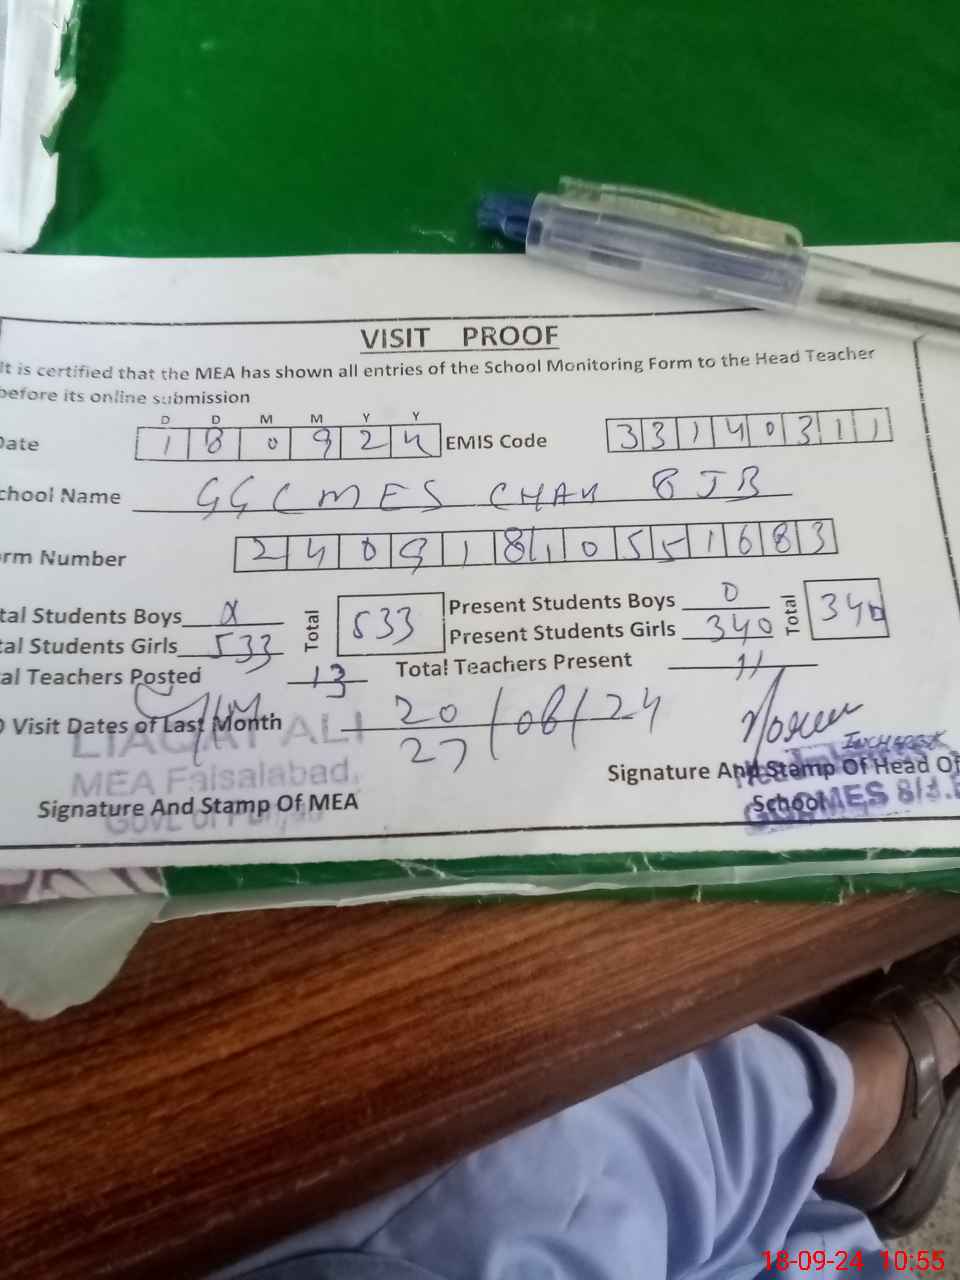 VISIT PROOF
It is certified that the MEA has shown all entries of the School Monitoring Form to the Head Teacher
before its online submission
D D M M Y Y
Date 1 8 0 9 2 4 EMIS Code 3 3 1 4 0 3 1 1
chool Name GGCMES CHAK 8JB
rm Number 2 4 0 9 1 8 1 0 5 5 1 6 8 3
tal Students Boys Total 533 Present Students Boys 0 Total 340
tal Students Girls 533 Present Students Girls 340
al Teachers Posted 13 Total Teachers Present 11
Visit Dates of Last Month 20 / 08 / 24
27
LIAQAT ALI
MEA Faisalabad.
Govt. of Punjab
Signature And Stamp Of MEA
Incharge
Signature And Stamp Of Head Of
School
MES 8/J.B
18-09-24 10:55